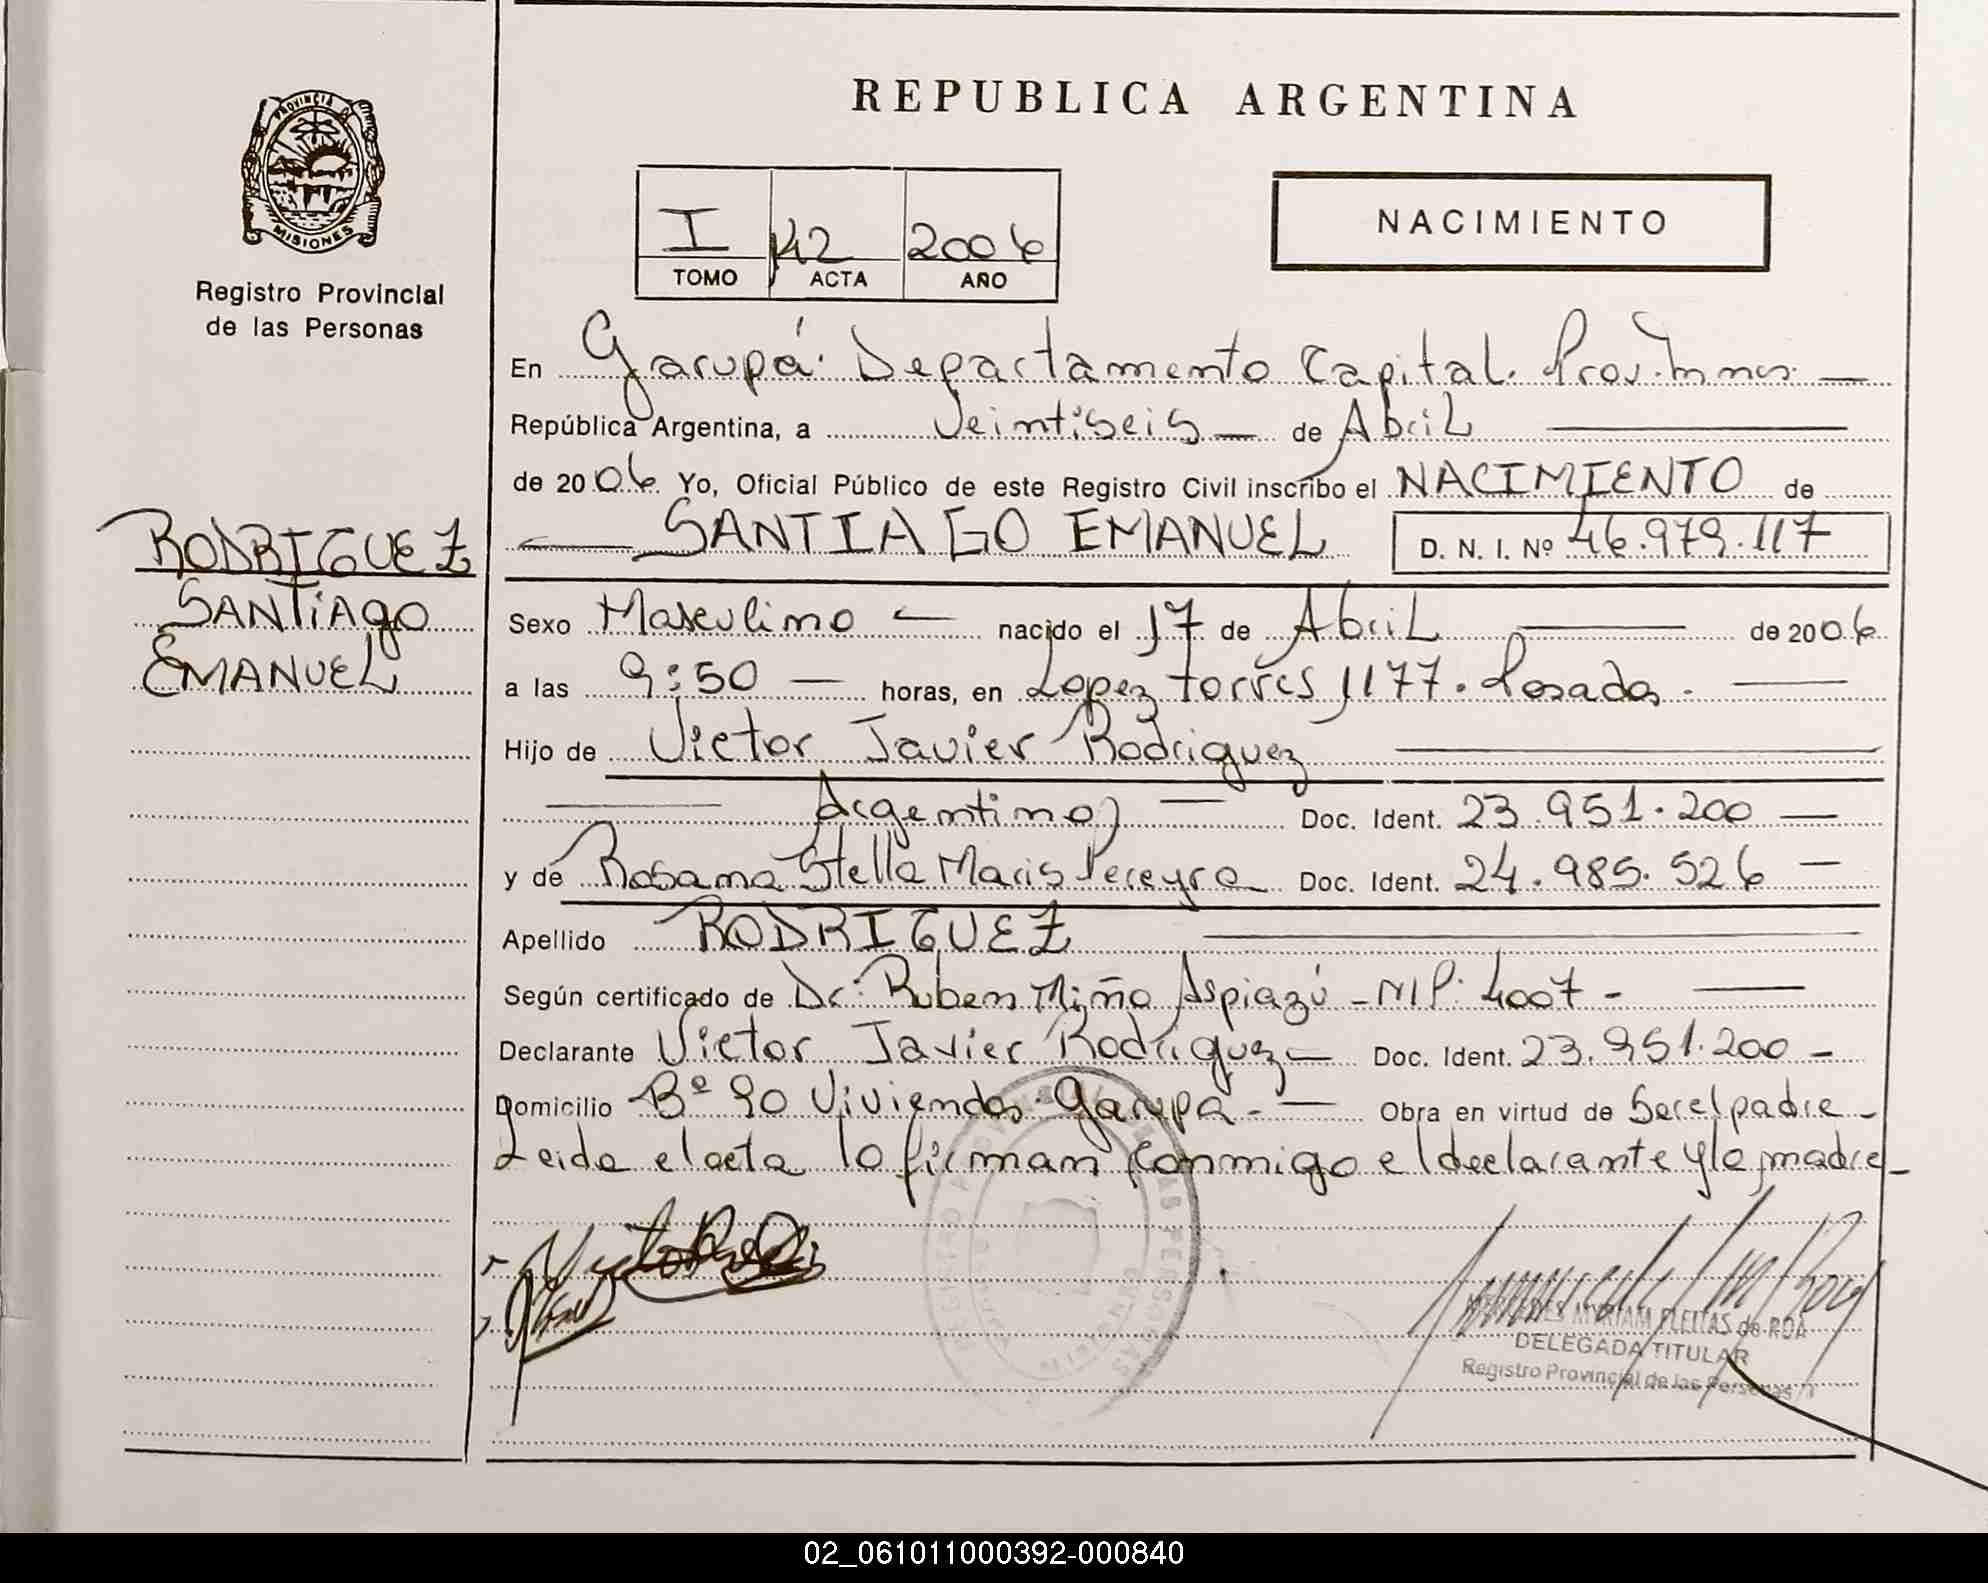 PROVINCIA D
MISIONES
Registro Provincial
de las Personas
RODRIGUEZ
SANTIAGO
EMANUEL
REPUBLICA ARGENTINA
I 142 2006
TOMO ACTA AÑO
NACIMIENTO
En Garupá. Departamento Capital. Prov. Mnes.
República Argentina, a Veintiseis de Abril
de 2006 Yo, Oficial Público de este Registro Civil inscribo el NACIMIENTO de
SANTIAGO EMANUEL D. N. I. Nº 46.979.117
Sexo Masculino nacido el 17 de Abril de 2006
a las 9:50 horas, en Lopez Torres 1177. Posadas.
Hijo de Victor Javier Rodriguez
Argentino Doc. Ident. 23.951.200
y de Rosana Stella Maris Pereyra Doc. Ident. 24.985.526
Apellido RODRIGUEZ
Según certificado de Dr. Ruben Miño Aspiazú - MP: 4007 -
Declarante Victor Javier Rodriguez Doc. Ident. 23.951.200 -
Domicilio Bº 90 Viviendas. Garupa. Obra en virtud de Ser el padre -
Leida el acta lo firman conmigo el declarante y la madre -
MERCEDES MYRIAM FLEITAS de ROA
DELEGADA TITULAR
Registro Provincial de las Personas
02_061011000392-000840